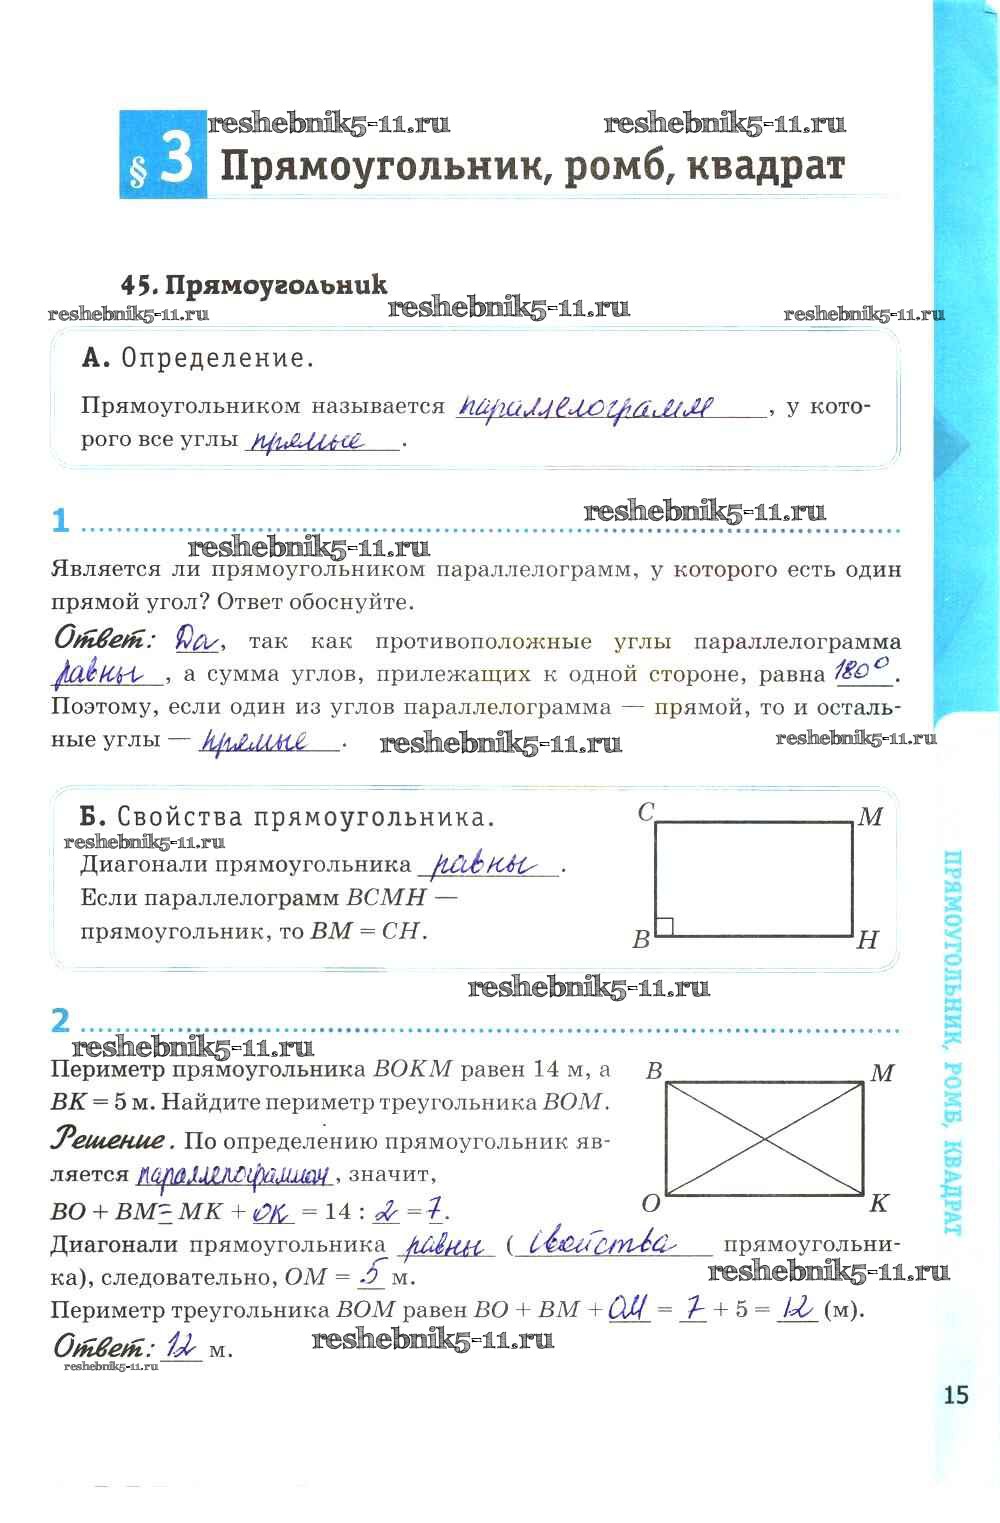 reshebnik5-11.ru reshebnik5-11.ru
§ 3 Прямоугольник, ромб, квадрат
45. Прямоугольник
reshebnik5-11.ru reshebnik5-11.ru reshebnik5-11.ru
А. Определение.
Прямоугольником называется параллелограмм, у кото-
рого все углы прямые.
reshebnik5-11.ru
1
reshebnik5-11.ru
Является ли прямоугольником параллелограмм, у которого есть один
прямой угол? Ответ обоснуйте.
Ответ: Да, так как противоположные углы параллелограмма
равны, а сумма углов, прилежащих к одной стороне, равна 180°.
Поэтому, если один из углов параллелограмма — прямой, то и осталь-
ные углы — прямые. reshebnik5-11.ru reshebnik5-11.ru
Б. Свойства прямоугольника.
reshebnik5-11.ru
Диагонали прямоугольника равны.
Если параллелограмм BCMH —
прямоугольник, то BM = CH.
C M
B H
reshebnik5-11.ru
2
reshebnik5-11.ru
Периметр прямоугольника BOKM равен 14 м, а
BK = 5 м. Найдите периметр треугольника BOM.
Решение. По определению прямоугольник яв-
ляется параллелограммом, значит,
BO + BM = MK + OK = 14 : 2 = 7.
B M
O K
Диагонали прямоугольника равны (свойства прямоугольни-
ка), следовательно, OM = 5 м. reshebnik5-11.ru
Периметр треугольника BOM равен BO + BM + OM = 7 + 5 = 12 (м).
Ответ: 12 м. reshebnik5-11.ru
reshebnik5-11.ru
ПРЯМОУГОЛЬНИК, РОМБ, КВАДРАТ
15